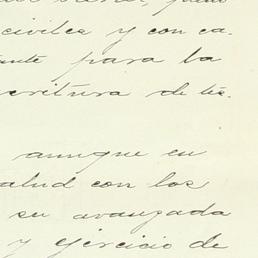 civiles y con ca-
para la
critura de tes-
aunque en
salud con los
su avanzada
y ejercicio de